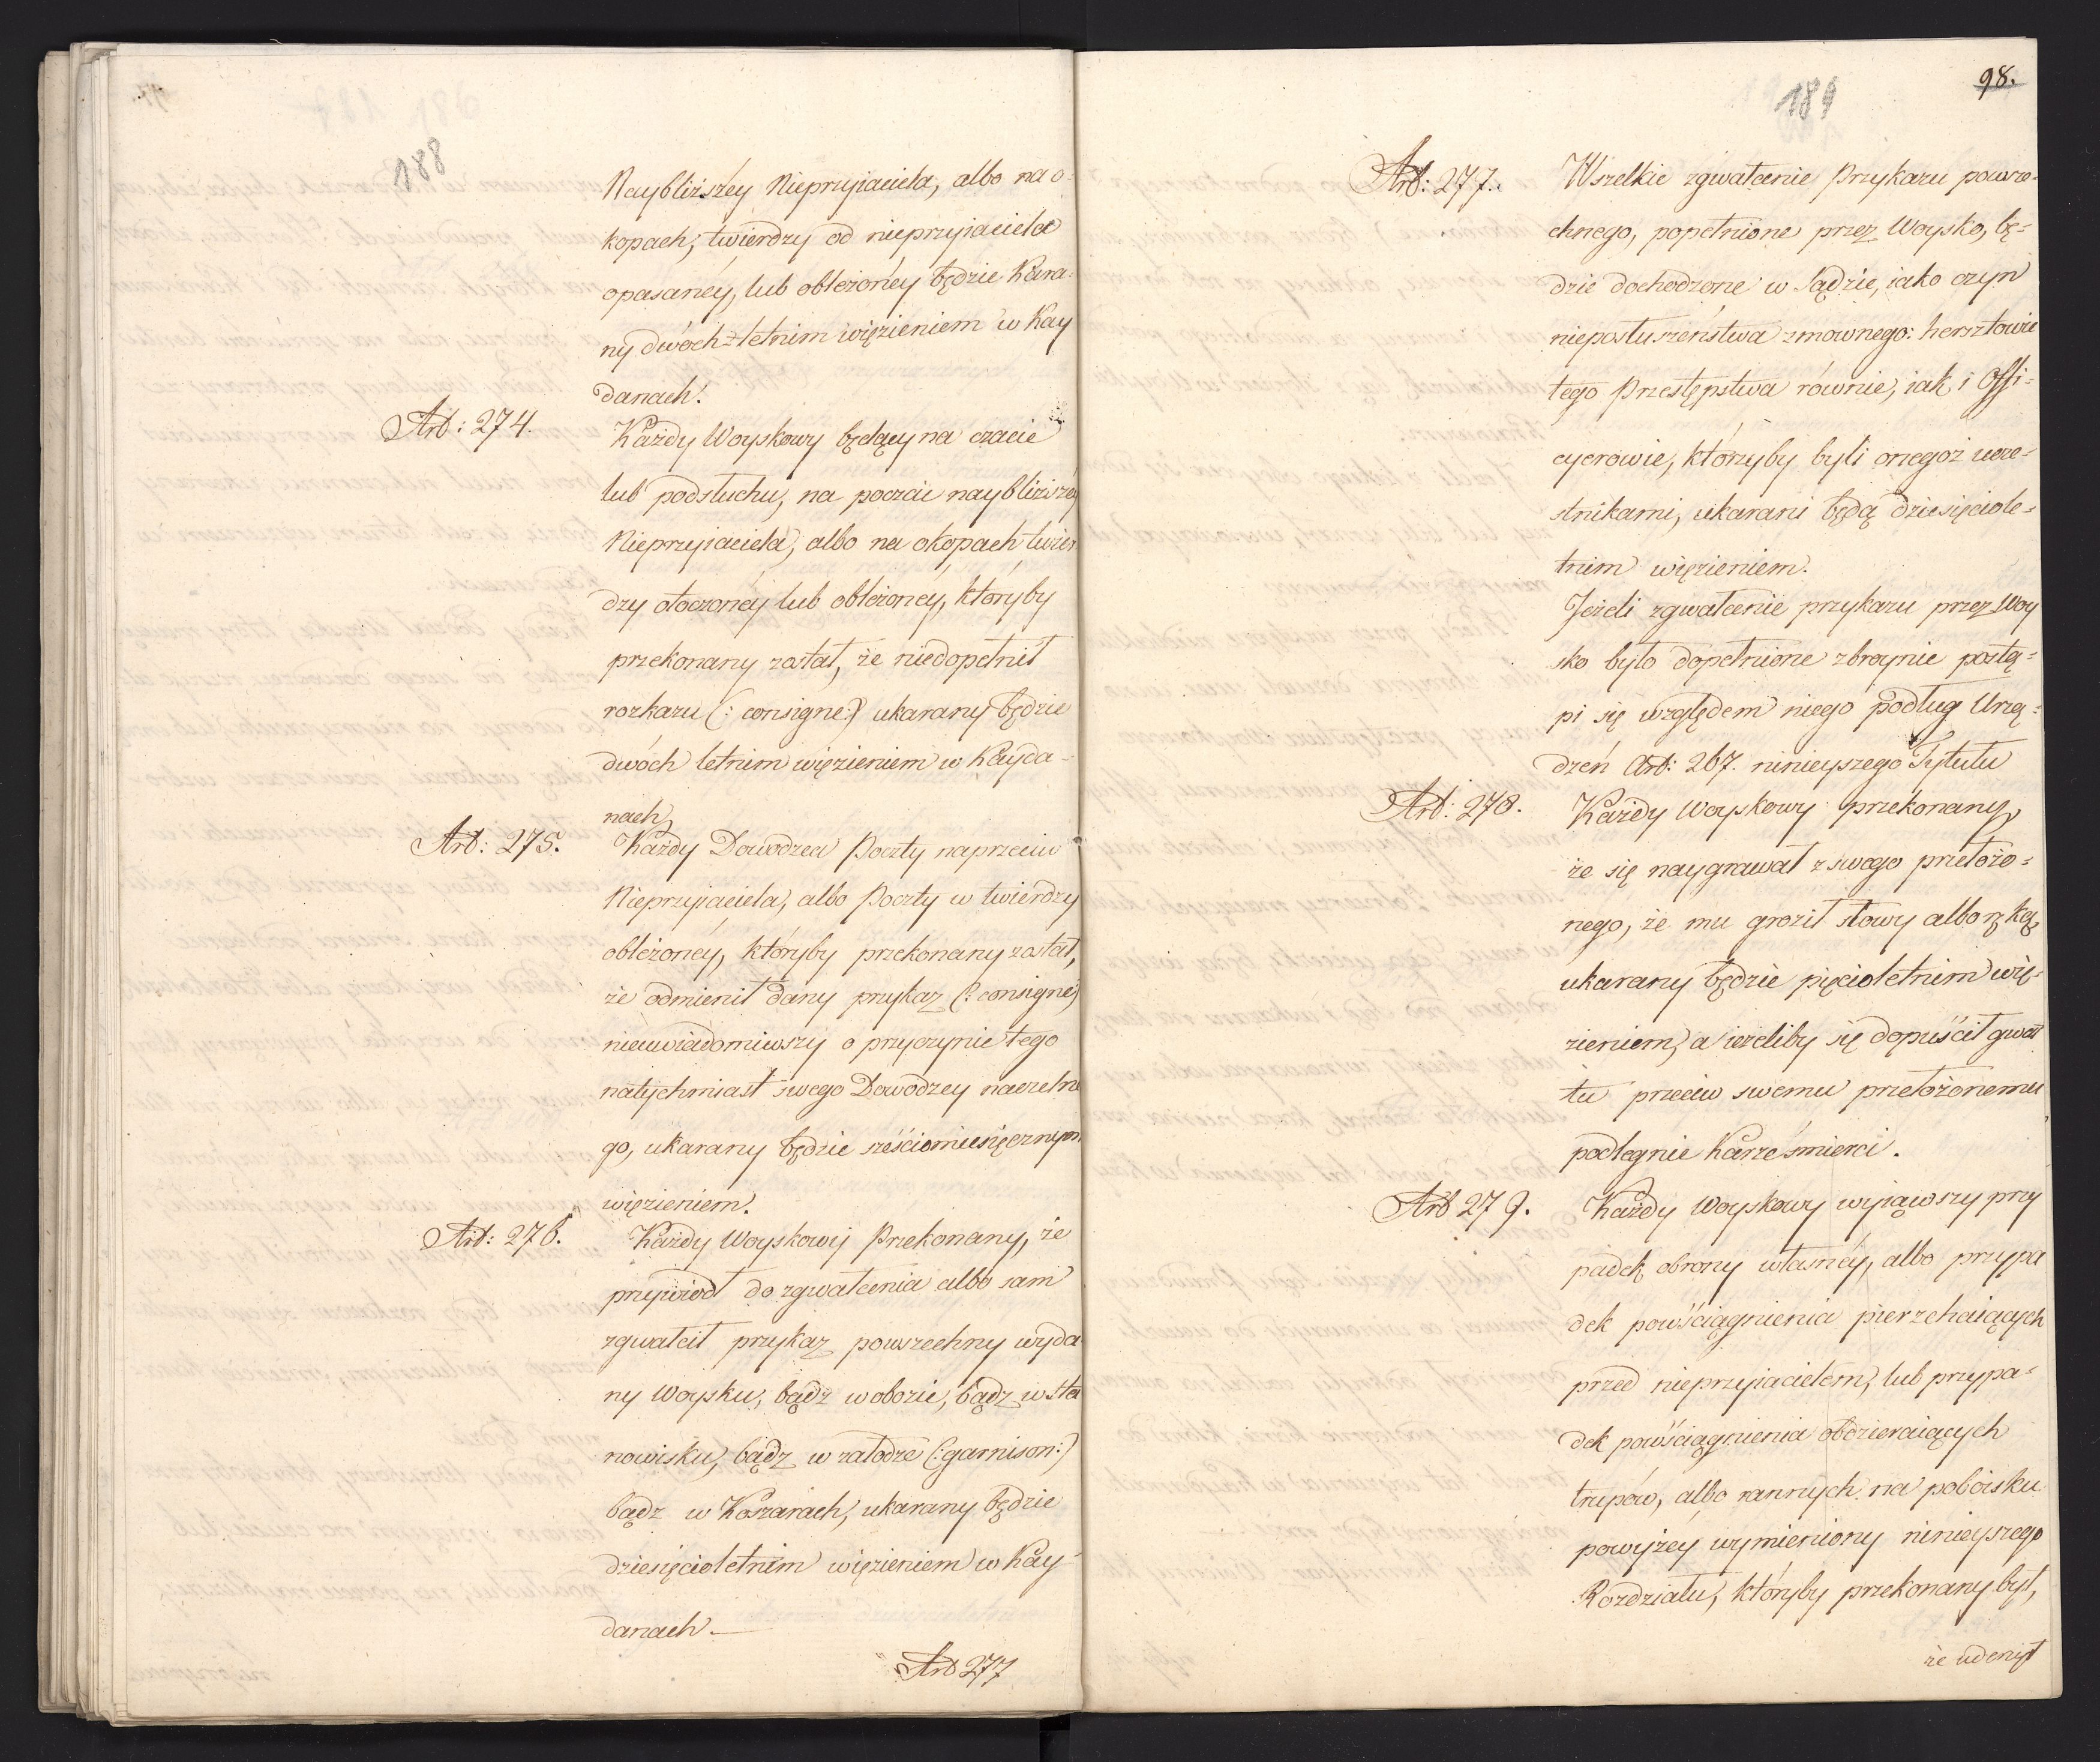 188
Naybliższéy Nieprzyiaciela, albo na o-
kopach; twierdzy od nieprzyiaciela
opasanéy, lub oblężonéy będzie Kara-
ny dwóch=letnim więzieniem w Kay
danach.
Art: 274.
Każdy Woyskowy będący na czacie
lub podsłuchu, na poczcie naybliższéy
Nieprzyiaciela, albo na okopach twier
dzy otoczonéy lub oblężonéy, któryby
przekonany został, że niedopełnił
rozkazu (: consigne:) ukarany będzie
dwóch letnim więzieniem w Kayda-
nach,
Art: 275.
Każdy Dowodzca Poczty naprzeciw
Nieprzyiaciela, albo Poczty w twierdzy
oblężonéy, któryby przekonany został,
że odmienił dany przykaz (: consigne)
nieuwiadomiwszy o przyczynie tego
natychmiast swego Dowodzcy naczelne
go, ukarany będzie sześciomiesięcznym
więzieniem.
Art: 276.
Każdy Woyskowy Przekonany, że
przywiodł do zgwałcenia albo sam
zgwałcił przykaz powszechny wyda
ny Woysku, bądź w obozie, bądz w sta
nowisku, bądz w załodze (: garnison:)
bądz w Koszarach, ukarany będzie
dziesięcioletnim więzieniem w Kay-
danach —
Art 277
98.
189
Art: 277.
Wszelkie zgwałcenie Przykazu powsze-
chnego, popełnione przez Woysko, bę=
dzie dochodzone w Sądzie, iako czyn
nieposłuszeństwa zmownego: hersztowie
tego Przestępstwa równie, iak i Offi=
cyerowie, którzyby byli onegoż ucze=
stnikami, ukarani będą dziesięciole=
tnim więzieniem.
Jeżeli zgwałcenie przykazu przez Woy
sko było dopełnione zbroynie postą=
pi się względem niego podług Urzą=
dzeń Art: 267. ninieyszego Tytułu
Art: 278.
Każdy Woyskowy przekonany,
że się naygrawał z swego przełożo=
nego, że mu groził słowy albo ręką,
ukarany będzie pięcioletnim wię-
zieniem, a ieżeliby się dopuścił gwał
tu przeciw swemu przełożonemu,
podlegnie Karze śmierci.
Art 279.
Każdy Woyskowy wyiąwszy przy
padek obrony własnéy, albo przypa
dek powściągnienia pierzchaiących
przed nieprzyiacielem, lub przypa-
dek powściągnienia obdzieraiących
trupów, albo rannych na poboisku
powyżey wymieniony ninieyszego
Rozdziału, któryby przekonany był,
że uderzył